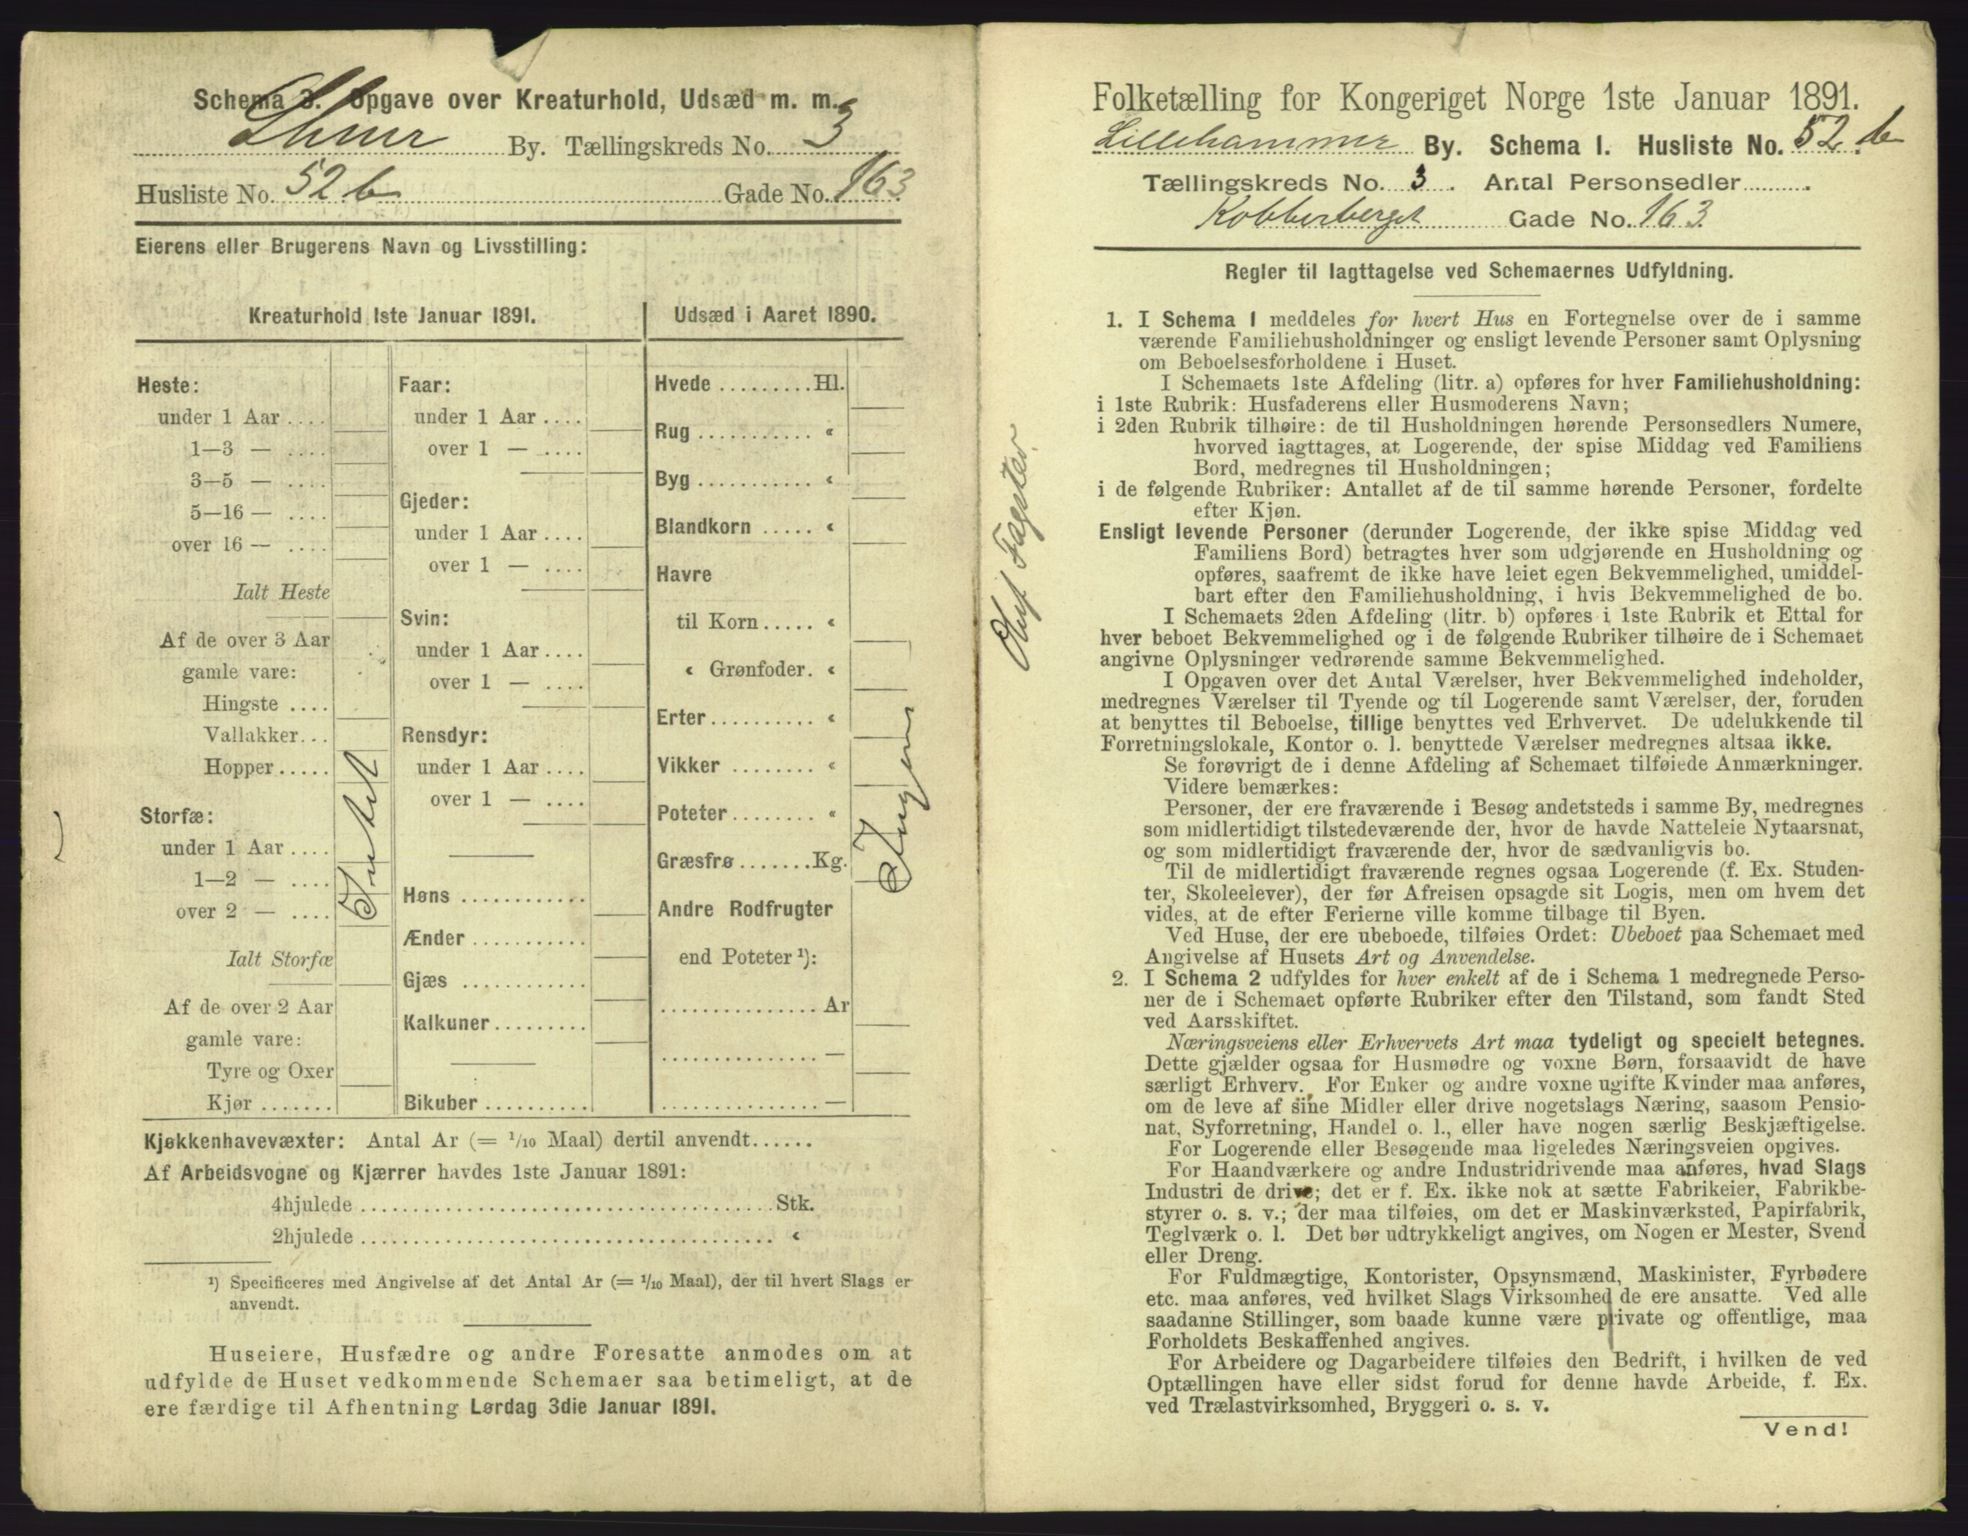 Schema 3. Opgave over Kreaturhold, Udsæd m. m.
Lhmr By. Tællingskreds No. 3
Husliste No. 52 b Gade No. 163
Eierens eller Brugerens Navn og Livsstilling:
Kreaturhold 1ste Januar 1891.
Heste:
under 1 Aar ....
1—3 — ....
3—5 — ....
5—16 — ....
over 16 — ....
Ialt Heste
Af de over 3 Aar
gamle vare:
Hingste ....
Vallakker...
Hopper.....
Storfæ:
under 1 Aar ....
1—2 — ....
over 2 — ....
Ialt Storfæ
Af de over 2 Aar
gamle vare:
Tyre og Oxer
Kjør .......
Intet
Faar:
under 1 Aar ....
over 1 — ....
Gjeder:
under 1 Aar ....
over 1 — ....
Svin:
under 1 Aar ....
over 1 — ....
Rensdyr:
under 1 Aar ....
over 1 — ....
Høns ............
Ænder ...........
Gjæs ............
Kalkuner.........
Bikuber ..........
Udsæd i Aaret 1890.
Hvede .........Hl.
Rug ........... «
Byg ........... «
Blandkorn ..... «
Havre
til Korn ..... «
« Grønfoder. «
Erter.......... «
Vikker ........ «
Poteter........ «
Græsfrø .......Kg.
Andre Rodfrugter
end Poteter ¹):
............... Ar
............... —
............... —
Ingen
Kjøkkenhavevæxter: Antal Ar (= 1/10 Maal) dertil anvendt......
Af Arbeidsvogne og Kjærrer havdes 1ste Januar 1891:
4hjulede ......................................Stk.
2hjulede ...................................... «
¹) Specificeres med Angivelse af det Antal Ar (= 1/10 Maal), der til hvert Slags er
anvendt.
Huseiere, Husfædre og andre Foresatte anmodes om at
udfylde de Huset vedkommende Schemaer saa betimeligt, at de
ere færdige til Afhentning Lørdag 3die Januar 1891.
Oluf Fagster.
Folketælling for Kongeriget Norge 1ste Januar 1891.
Lillehammer By. Schema 1. Husliste No. 52. b
Tællingskreds No. 3. Antal Personsedler .
Kobberberget Gade No. 163.
Regler til Iagttagelse ved Schemaernes Udfyldning.
1. I Schema 1 meddeles for hvert Hus en Fortegnelse over de i samme
værende Familiehusholdninger og ensligt levende Personer samt Oplysning
om Beboelsesforholdene i Huset.
I Schemaets 1ste Afdeling (litr. a) opføres for hver Familiehusholdning:
i 1ste Rubrik: Husfaderens eller Husmoderens Navn;
i 2den Rubrik tilhøire: de til Husholdningen hørende Personsedlers Numere,
hvorved iagttages, at Logerende, der spise Middag ved Familiens
Bord, medregnes til Husholdningen;
i de følgende Rubriker: Antallet af de til samme hørende Personer, fordelte
efter Kjøn.
Ensligt levende Personer (derunder Logerende, der ikke spise Middag ved
Familiens Bord) betragtes hver som udgjørende en Husholdning og
opføres, saafremt de ikke have leiet egen Bekvemmelighed, umiddel-
bart efter den Familiehusholdning, i hvis Bekvemmelighed de bo.
I Schemaets 2den Afdeling (litr. b) opføres i 1ste Rubrik et Ettal for
hver beboet Bekvemmelighed og i de følgende Rubriker tilhøire de i Schemaet
angivne Oplysninger vedrørende samme Bekvemmelighed.
I Opgaven over det Antal Værelser, hver Bekvemmelighed indeholder,
medregnes Værelser til Tyende og til Logerende samt Værelser, der, foruden
at benyttes til Beboelse, tillige benyttes ved Erhvervet. De udelukkende til
Forretningslokale, Kontor o. l. benyttede Værelser medregnes altsaa ikke.
Se forøvrigt de i denne Afdeling af Schemaet tilføiede Anmærkninger.
Videre bemærkes:
Personer, der ere fraværende i Besøg andetsteds i samme By, medregnes
som midlertidigt tilstedeværende der, hvor de havde Natteleie Nytaarsnat,
og som midlertidigt fraværende der, hvor de sædvanligvis bo.
Til de midlertidigt fraværende regnes ogsaa Logerende (f. Ex. Studen-
ter, Skoleelever), der før Afreisen opsagde sit Logis, men om hvem det
vides, at de efter Ferierne ville komme tilbage til Byen.
Ved Huse, der ere ubeboede, tilføies Ordet: Ubeboet paa Schemaet med
Angivelse af Husets Art og Anvendelse.
2. I Schema 2 udfyldes for hver enkelt af de i Schema 1 medregnede Perso-
ner de i Schemaet opførte Rubriker efter den Tilstand, som fandt Sted
ved Aarsskiftet.
Næringsveiens eller Erhvervets Art maa tydeligt og specielt betegnes.
Dette gjælder ogsaa for Husmødre og voxne Børn, forsaavidt de have
særligt Erhverv. For Enker og andre voxne ugifte Kvinder maa anføres,
om de leve af sine Midler eller drive nogetslags Næring, saasom Pensio-
nat, Syforretning, Handel o. l., eller have nogen særlig Beskjæftigelse.
For Logerende eller Besøgende maa ligeledes Næringsveien opgives.
For Haandværkere og andre Industridrivende maa anføres, hvad Slags
Industri de drive; det er f. Ex. ikke nok at sætte Fabrikeier, Fabrikbe-
styrer o. s. v.; der maa tilføies, om det er Maskinværksted, Papirfabrik,
Teglværk o. l. Det bør udtrykkeligt angives, om Nogen er Mester, Svend
eller Dreng.
For Fuldmægtige, Kontorister, Opsynsmænd, Maskinister, Fyrbødere
etc. maa anføres, ved hvilket Slags Virksomhed de ere ansatte. Ved alle
saadanne Stillinger, som baade kunne være private og offentlige, maa
Forholdets Beskaffenhed angives.
For Arbeidere og Dagarbeidere tilføies den Bedrift, i hvilken de ved
Optællingen have eller sidst forud for denne havde Arbeide, f. Ex.
ved Trælastvirksomhed, Bryggeri o. s. v.
Vend!